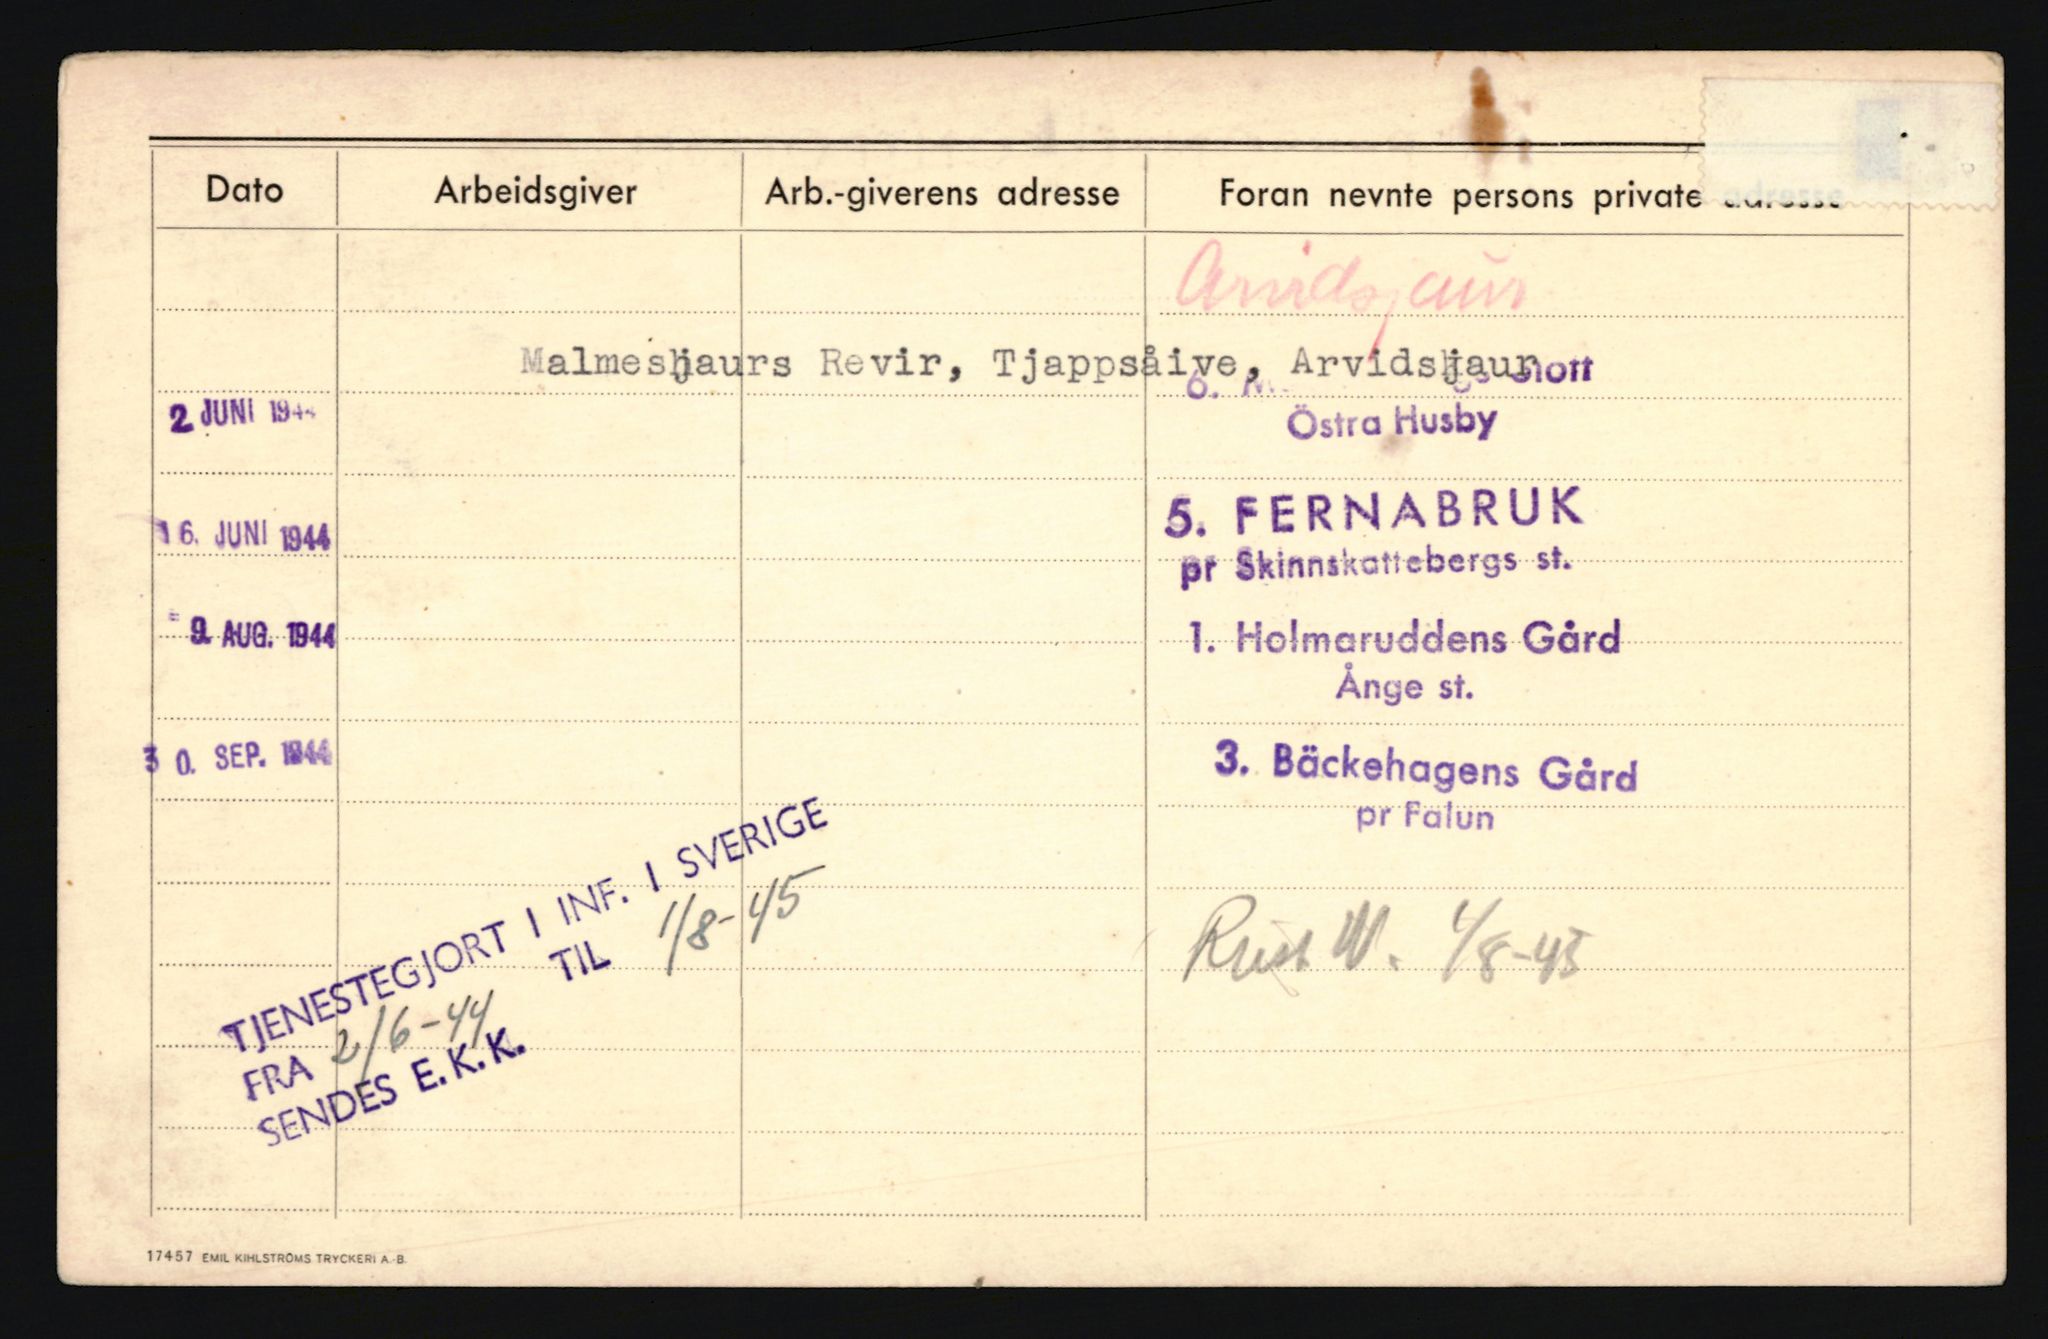 Dato Arbeidsgiver Arb.-giverens adresse Foran nevnte persons private adresse
Arvidsjaur
Malmesjaurs Revir, Tjappsåive, Arvidsjaur
6.
2 JUNI 1944 Östra Husby
5. FERNABRUK
16. JUNI 1944 pr Skinnskattebergs st.
9. AUG. 1944 1. Holmaruddens Gård
Ånge st.
30. SEP. 1944 3. Bäckehagens Gård
pr Falun
TJENESTEGJORT I INF. I SVERIGE
FRA 2/6-44 TIL 1/8-45
SENDES E.K.K.
W. 4/8-45
17457 EMIL KIHLSTRÖMS TRYCKERI A.-B.